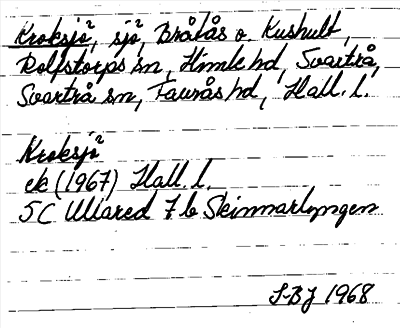 Kroksjö, sjö, Bråtås o. Kushult,
Rolfstorps sn, Himle hd, Svartrå,
Svartrå sn, Faurås hd, Hall. l.
Kroksjö
ek (1967) Hall. l.
5C Ullared 7 b Skinnarlyngen
S-BJ 1968